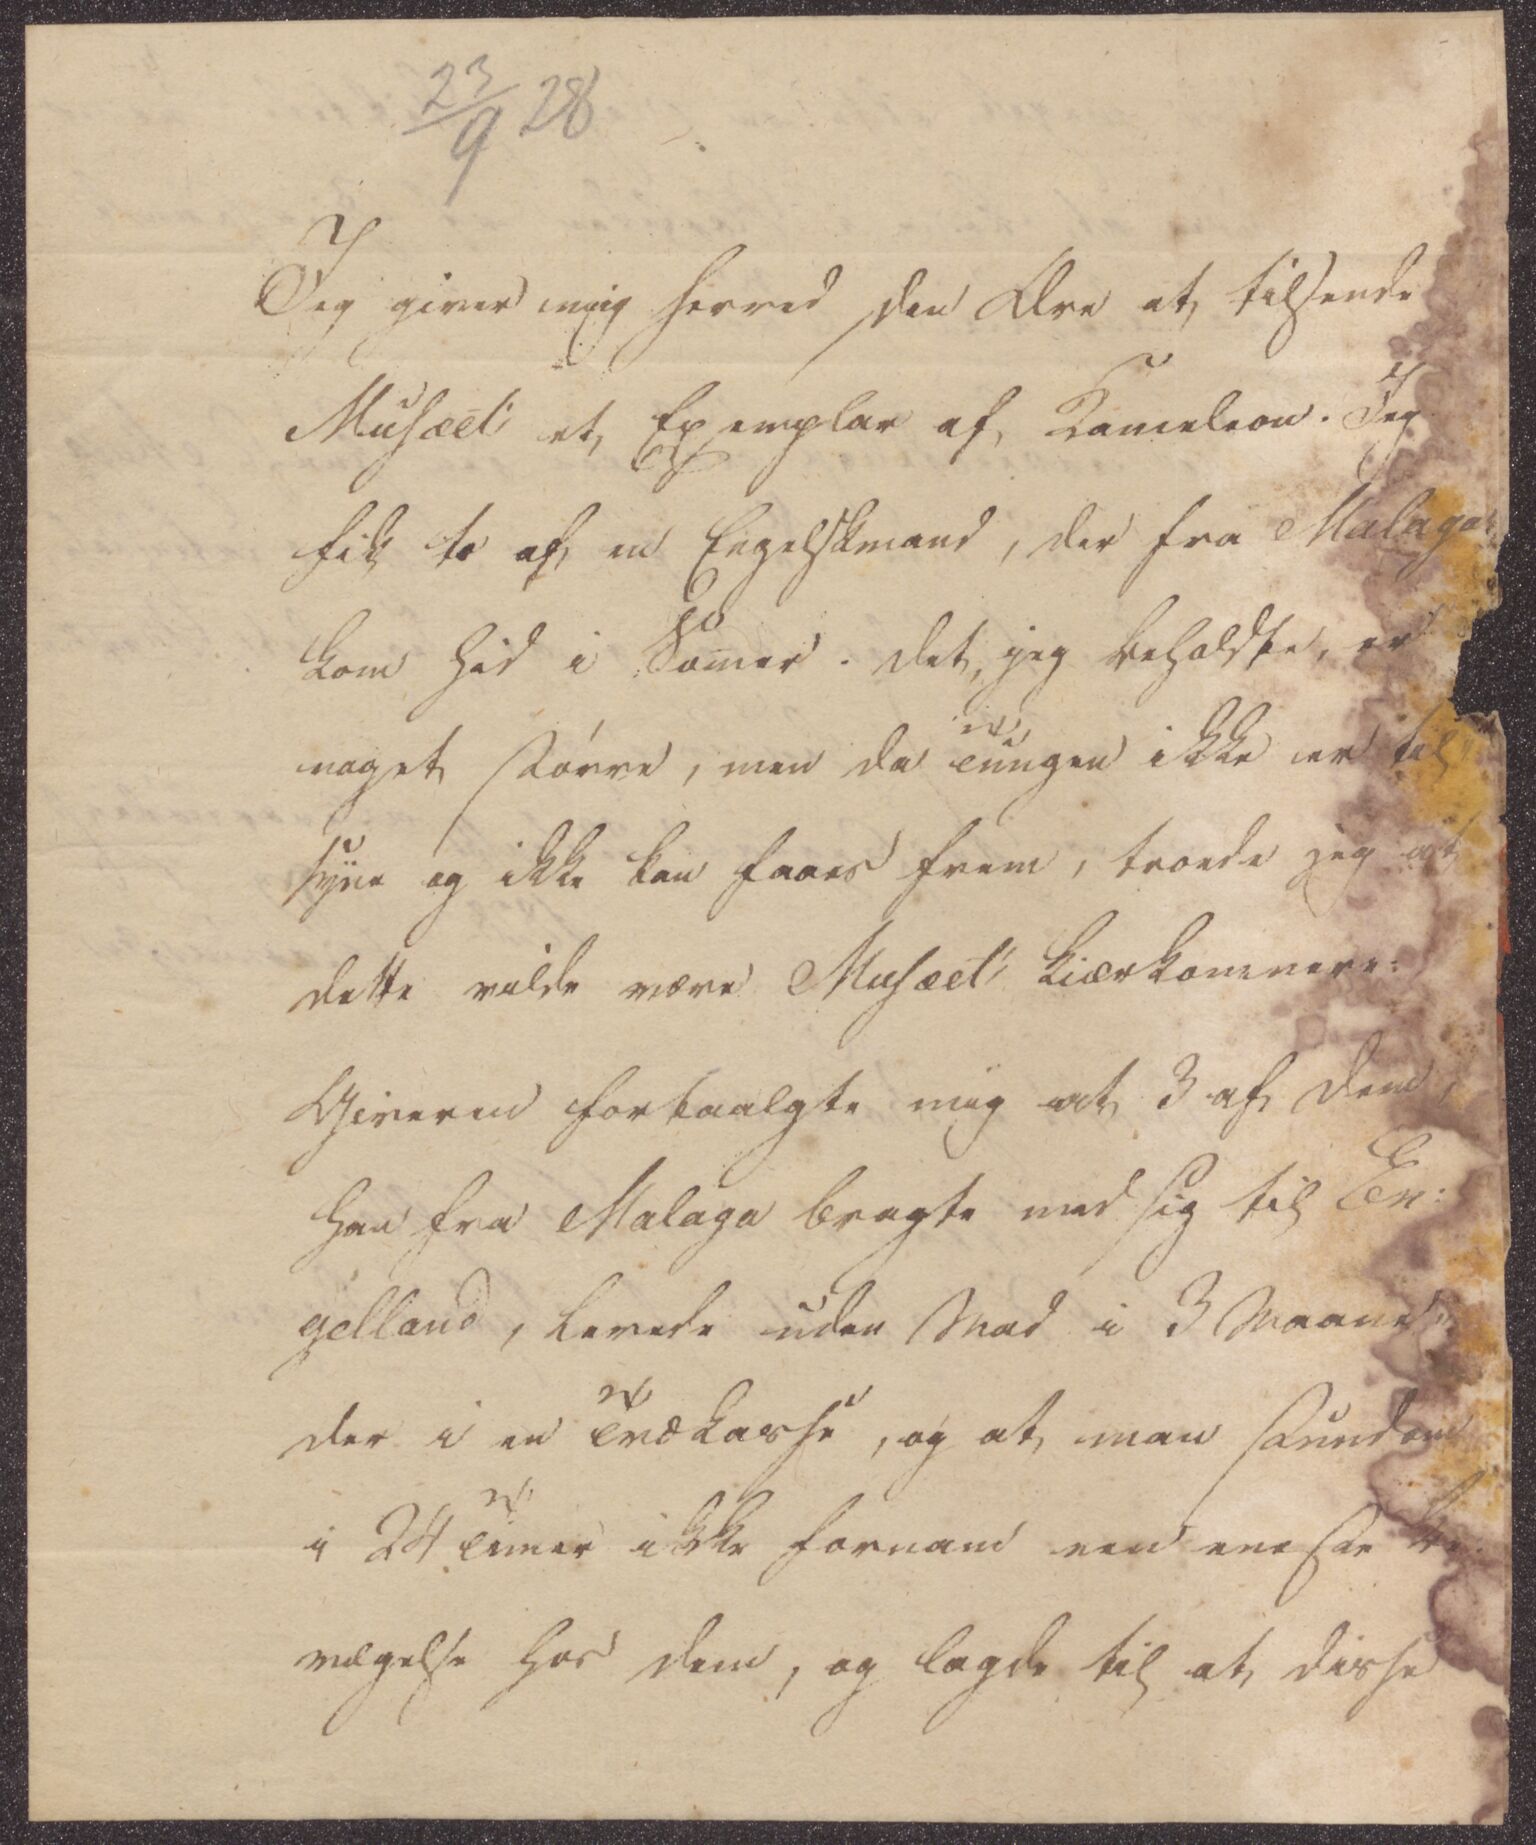 23/9 28
Jeg giver mig herved den Ære at tilsende
Musæet et Exemplar af Kameleon. Jeg
fik to af en Engelskmand, der fra Malaga
kom hid i Somer. Det, jeg beholdte, er
noget større, men da Tungen ikke er til
syne og ikke kan faaes frem, troede jeg at
dette vilde være Musæet kiærkomnere:
Giveren fortaalgte mig at 3 af dem,
han fra Malaga bragte med sig til En:
gelland, levede uden Mad i 3 Maane:
der i en Trækasse, og at man stundom
i 24 Timer ikke fornam een eneste be:
vægelse hos dem, og lagde til at disse